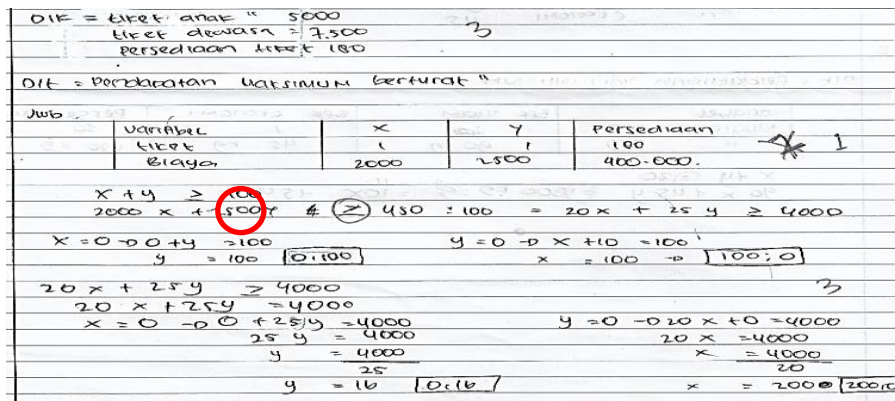 DIK = tiket anak" 5000
tiket dewasa = 7.500 3
persediaan tiket 180
DIt = Pendapatan Maksimum berturut"
Jwb.
Variabel x y Persediaan
tiket 1 1 100 1
Biaya 2000 2500 400.000.
x + y ≥ 100
2000 x + 2500 y ≥ 450 : 100 = 20x + 25 y ≥ 4000
x = 0 → 0 + y = 100 y = 0 → x + 10 = 100
y = 100 0:100 x = 100 → 100:0
20 x + 25 y ≥ 4000 3
20 x + 25y = 4000
x = 0 → 0 + 25y = 4000 y = 0 → 20 x + 0 = 4000
25 y = 4000 20 x = 4000
y = 4000 x = 4000
25 20
y = 16 0:16 x = 200